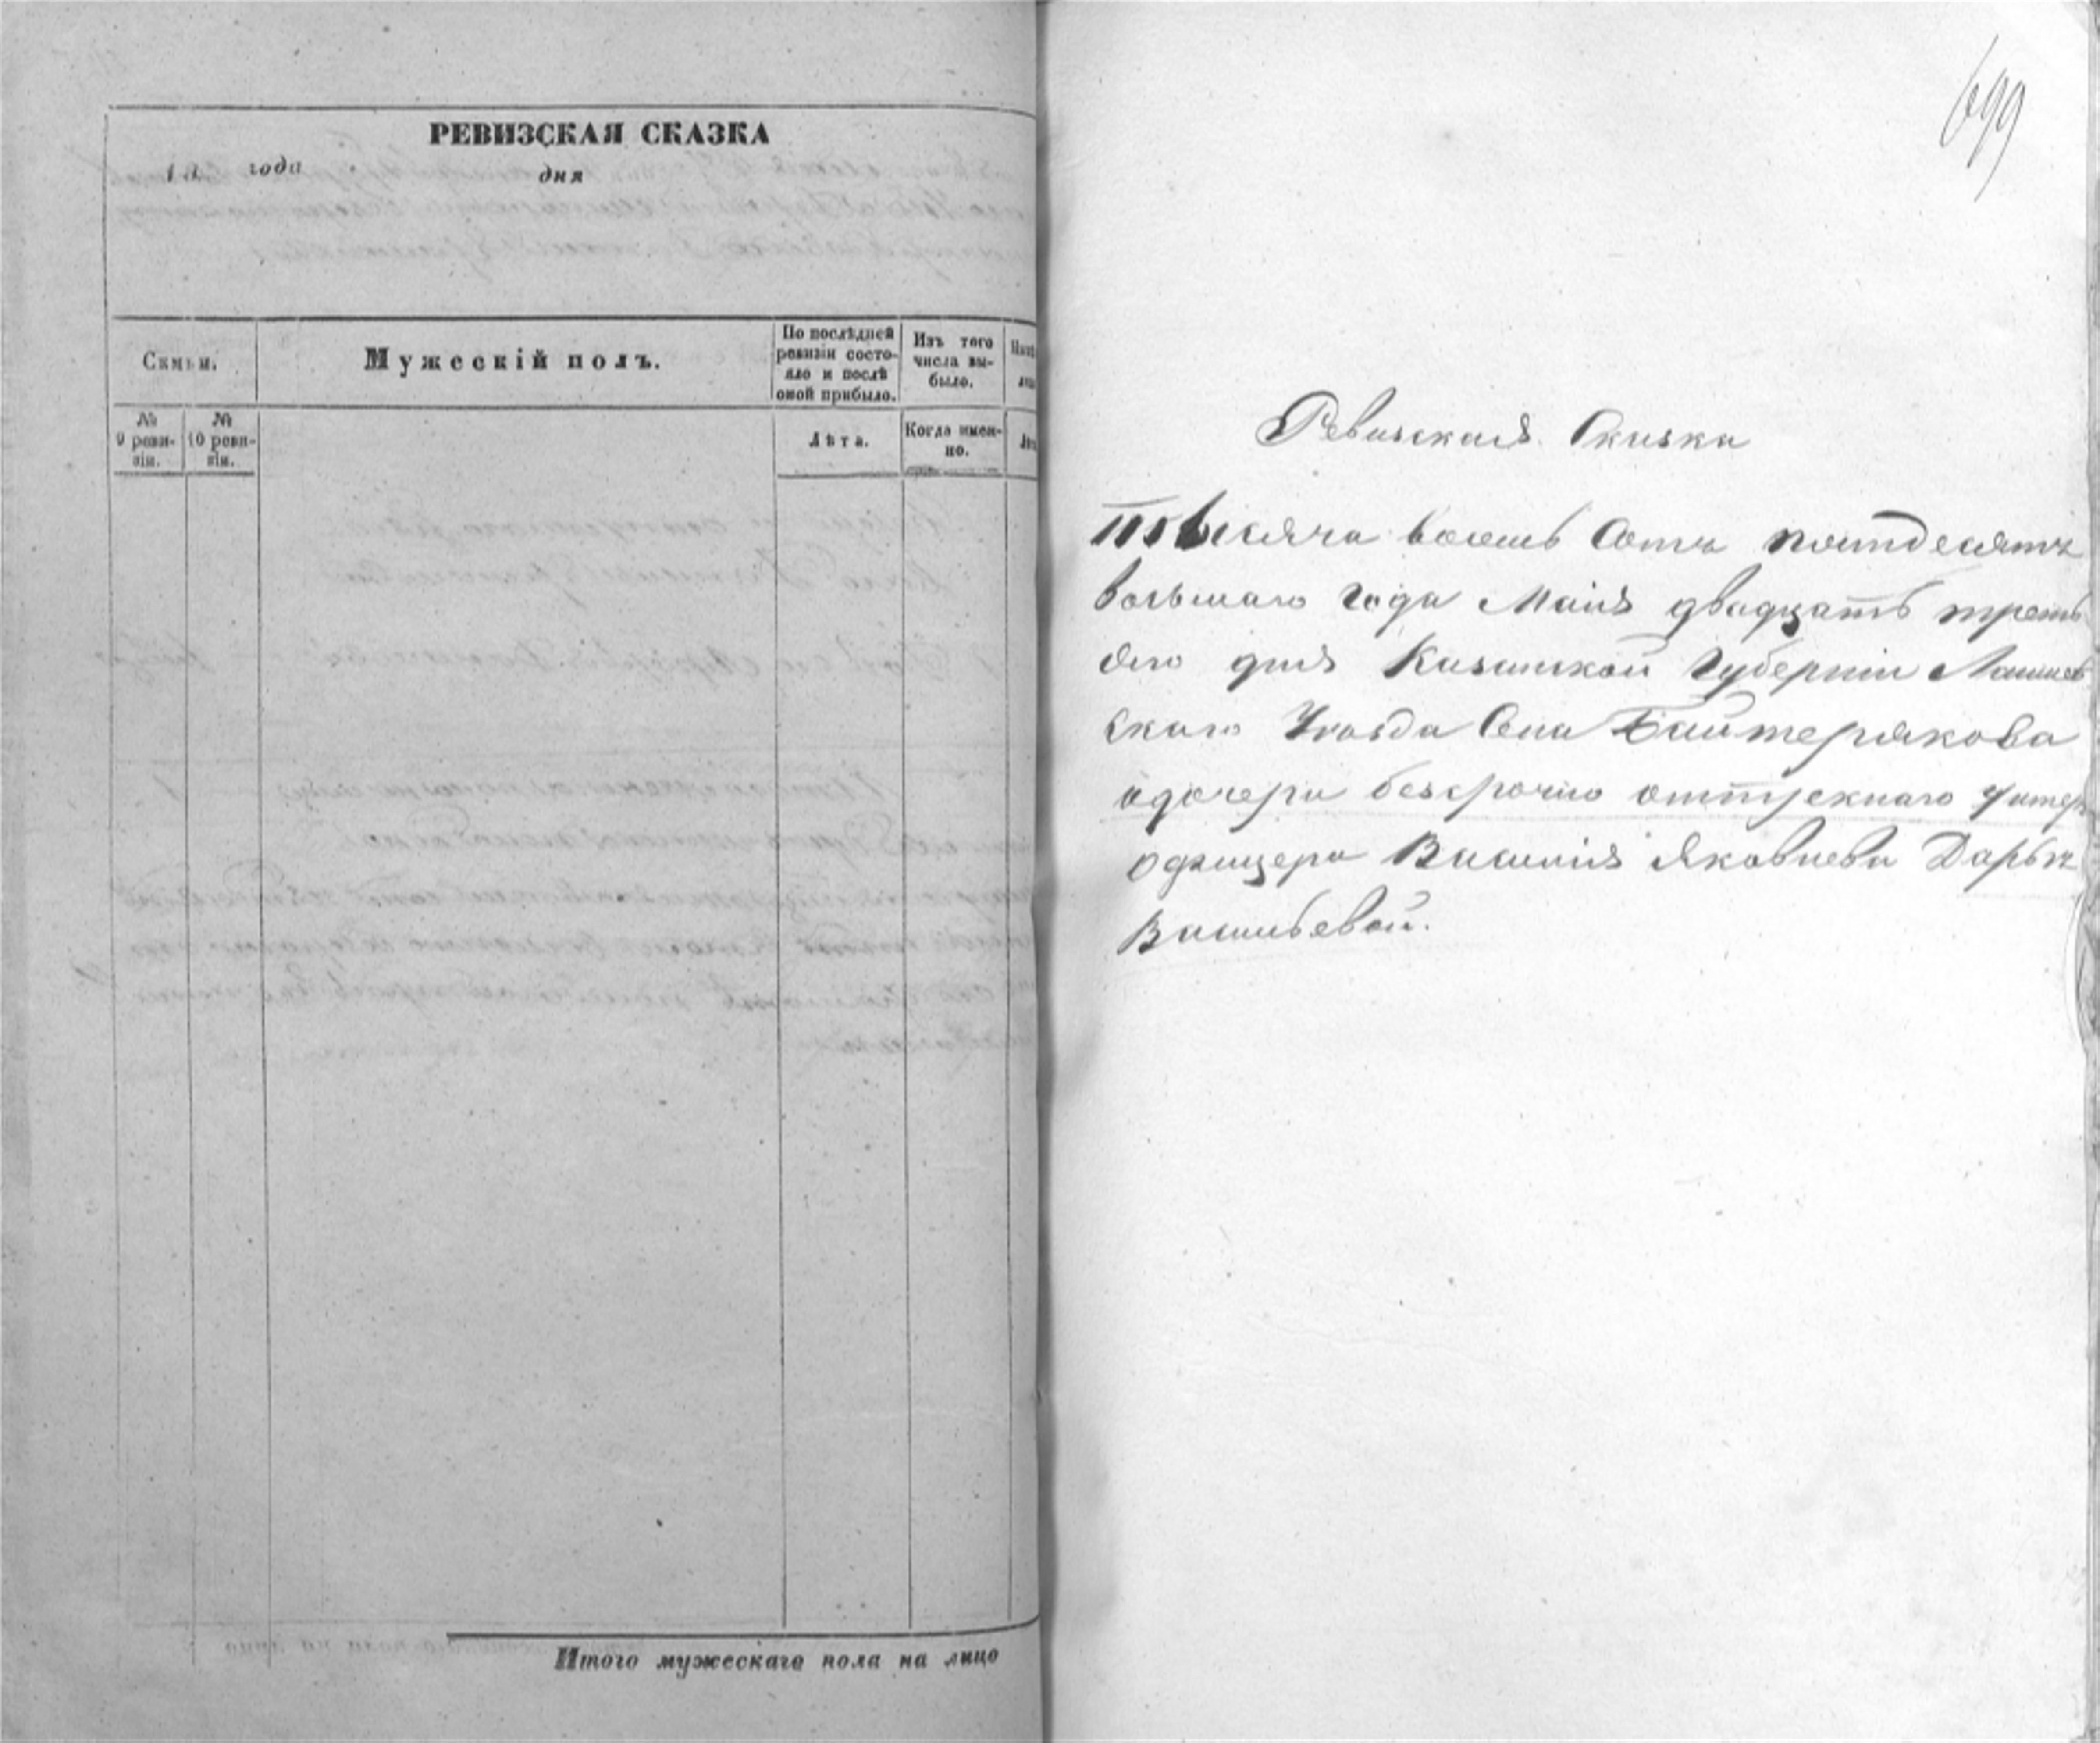 РЕВИЗСКАЯ СКАЗКА
18 года
дня
Семьи.
Мужескій полъ.
По послѣдней ревизіи состо-
яло и послѣ
оной прибыло.
Изъ того
числа вы-
было.
№
9 реви-
зіи.
№
10 реви-
зіи.
Лѣта.
Когда имен-
но.
Итого мужескаго пола на лицо
699
Ревизская Сказка
Тысяча восемь сотъ пятдесятъ
восьмаго года Маія двадцать треть
яго дня Казанской Губерніи Лаишев
скаго Уезда Села Байтерякова
одочери безсрочно отпускнаго Унтеръ
офицера Василія Яковлева Дарьи
Васильевой.